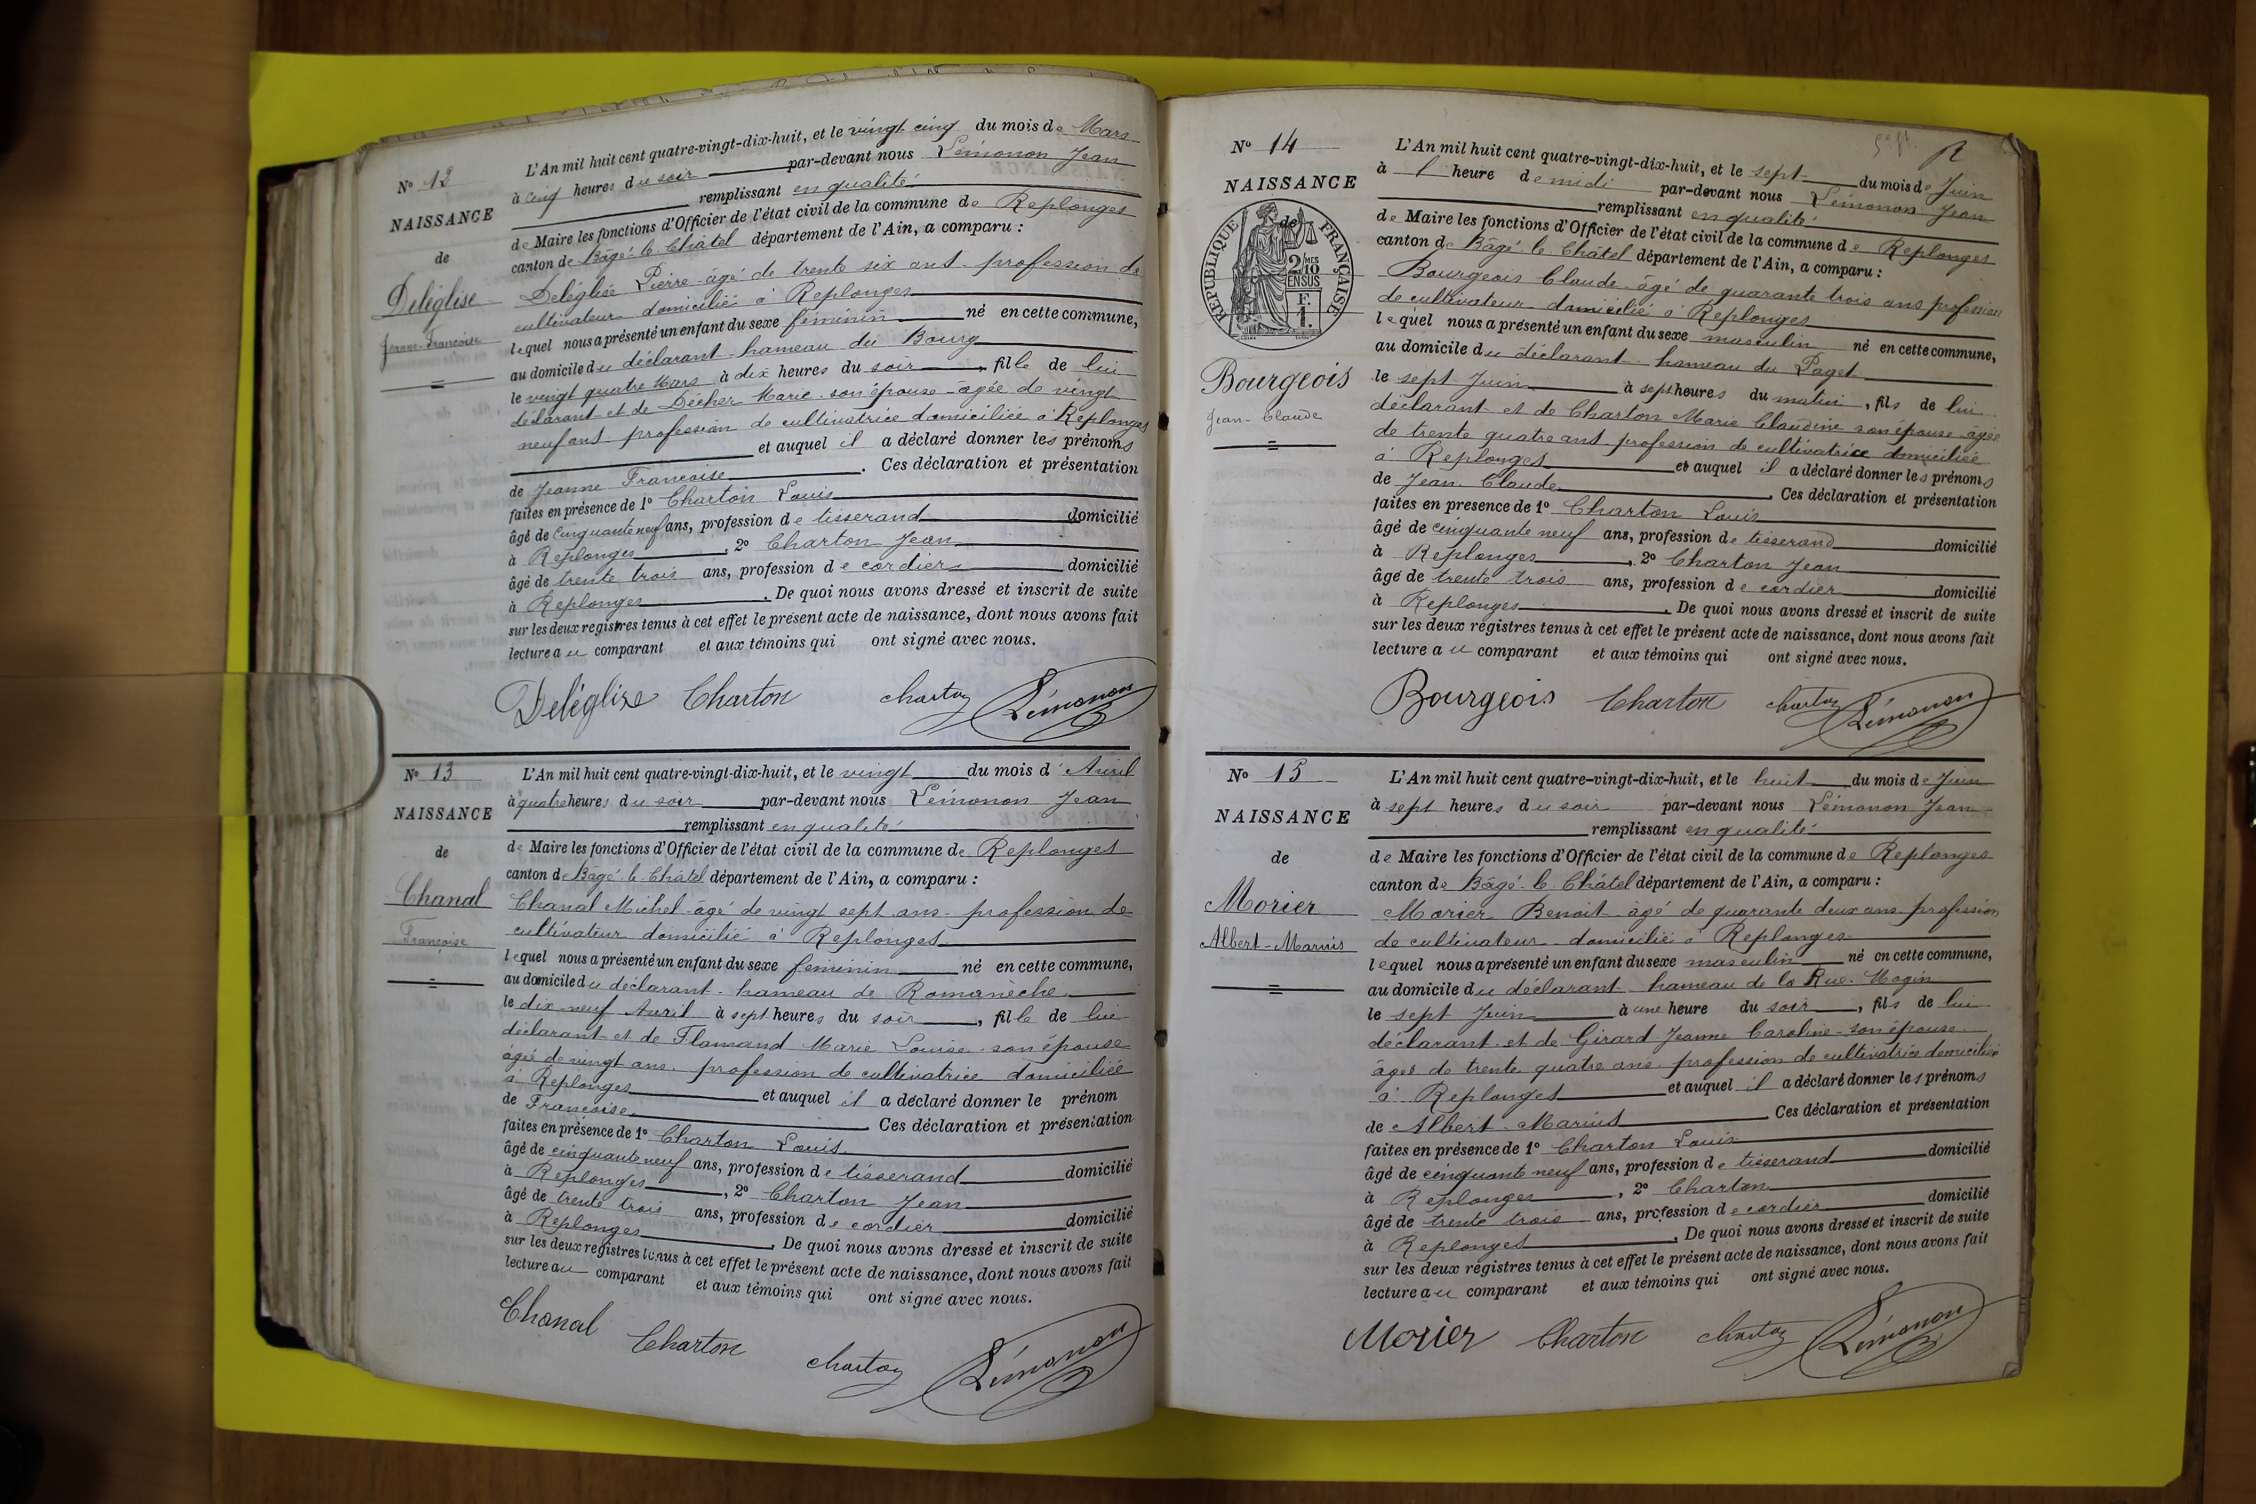 N° 12
NAISSANCE
de
Deléglise
Jeanne-Françoise
L'An mil huit cent quatre-vingt-dix-huit, et le vingt cinq du mois de Mars
à cinq heures du soir par-devant nous Lémonon Jean
remplissant en qualité
de Maire les fonctions d'Officier de l'état civil de la commune de Replonges
canton de Bâgé-le-Châtel département de l'Ain, a comparu :
Deléglise Pierre âgé de trente six ans profession de
cultivateur domicilié à Replonges
lequel nous a présenté un enfant du sexe féminin né en cette commune,
au domicile du déclarant hameau du Bourg
le vingt quatre Mars à dix heures du soir, fille de lui
déclarant et de Décher Marie son épouse âgée de vingt
neuf ans profession de cultivatrice domiciliée à Replonges
et auquel il a déclaré donner les prénoms
de Jeanne Françoise. Ces déclaration et présentation
faites en présence de 1° Charton Louis
âgé de cinquante neuf ans, profession de tisserand domicilié
à Replonges, 2° Charton Jean
âgé de trente trois ans, profession de cordier domicilié
à Replonges. De quoi nous avons dressé et inscrit de suite
sur les deux registres tenus à cet effet le présent acte de naissance, dont nous avons fait
lecture au comparant et aux témoins qui ont signé avec nous.
Deléglise Charton charton Lémonon
N° 13
NAISSANCE
de
Chanal
Françoise
L'An mil huit cent quatre-vingt-dix-huit, et le vingt du mois d'Avril
à quatre heures du soir par-devant nous Lémonon Jean
remplissant en qualité
de Maire les fonctions d'Officier de l'état civil de la commune de Replonges
canton de Bâgé-le-Châtel département de l'Ain, a comparu :
Chanal Michel âgé de vingt sept ans profession de
cultivateur domicilié à Replonges
lequel nous a présenté un enfant du sexe féminin né en cette commune,
au domicile du déclarant hameau de Romanèche
le dix neuf Avril à sept heures du soir, fille de lui
déclarant et de Flamand Marie Louise son épouse
âgée de vingt ans profession de cultivatrice domiciliée
à Replonges et auquel il a déclaré donner le prénom
de Françoise. Ces déclaration et présentation
faites en présence de 1° Charton Louis
âgé de cinquante neuf ans, profession de tisserand domicilié
à Replonges, 2° Charton Jean
âgé de trente trois ans, profession de cordier domicilié
à Replonges. De quoi nous avons dressé et inscrit de suite
sur les deux registres tenus à cet effet le présent acte de naissance, dont nous avons fait
lecture au comparant et aux témoins qui ont signé avec nous.
Chanal Charton charton Lémonon
sept.
N° 14
NAISSANCE
de
RÉPUBLIQUE FRANÇAISE
2/10 MES
EN SUS
F.
1.
Bourgeois
Jean-Claude
L'An mil huit cent quatre-vingt-dix-huit, et le sept du mois de Juin
à l' heure de midi par-devant nous Lémonon Jean
remplissant en qualité
de Maire les fonctions d'Officier de l'état civil de la commune de Replonges
canton de Bâgé-le-Châtel département de l'Ain, a comparu :
Bourgeois Claude âgé de quarante trois ans profession
de cultivateur domicilié à Replonges
lequel nous a présenté un enfant du sexe masculin né en cette commune,
au domicile du déclarant hameau du Paget
le sept Juin à sept heures du matin, fils de lui
déclarant et de Charton Marie Claudine son épouse âgée
de trente quatre ans profession de cultivatrice domiciliée
à Replonges et auquel il a déclaré donner les prénoms
de Jean Claude. Ces déclaration et présentation
faites en presence de 1° Charton Louis
âgé de cinquante neuf ans, profession de tisserand domicilié
à Replonges, 2° Charton Jean
âgé de trente trois ans, profession de cordier domicilié
à Replonges. De quoi nous avons dressé et inscrit de suite
sur les deux registres tenus à cet effet le présent acte de naissance, dont nous avons fait
lecture au comparant et aux témoins qui ont signé avec nous.
Bourgeois Charton charton Lémonon
N° 15
NAISSANCE
de
Morier
Albert-Marius
L'An mil huit cent quatre-vingt-dix-huit, et le huit du mois de Juin
à sept heures du soir par-devant nous Lémonon Jean
remplissant en qualité
de Maire les fonctions d'Officier de l'état civil de la commune de Replonges
canton de Bâgé-le-Châtel département de l'Ain, a comparu :
Morier Benoit âgé de quarante deux ans profession
de cultivateur domicilié à Replonges
lequel nous a présenté un enfant du sexe masculin né en cette commune,
au domicile du déclarant hameau de la Rue-Mogin
le sept Juin à une heure du soir, fils de lui
déclarant et de Girard Jeanne Caroline son épouse
âgée de trente quatre ans profession de cultivatrice domiciliée
à Replonges et auquel il a déclaré donner les prénoms
de Albert Marius Ces déclaration et présentation
faites en présence de 1° Charton Louis
âgé de cinquante neuf ans, profession de tisserand domicilié
à Replonges, 2° Charton
âgé de trente trois ans, profession de cordier domicilié
à Replonges. De quoi nous avons dressé et inscrit de suite
sur les deux registres tenus à cet effet le présent acte de naissance, dont nous avons fait
lecture au comparant et aux témoins qui ont signé avec nous.
Morier Charton charton Lémonon